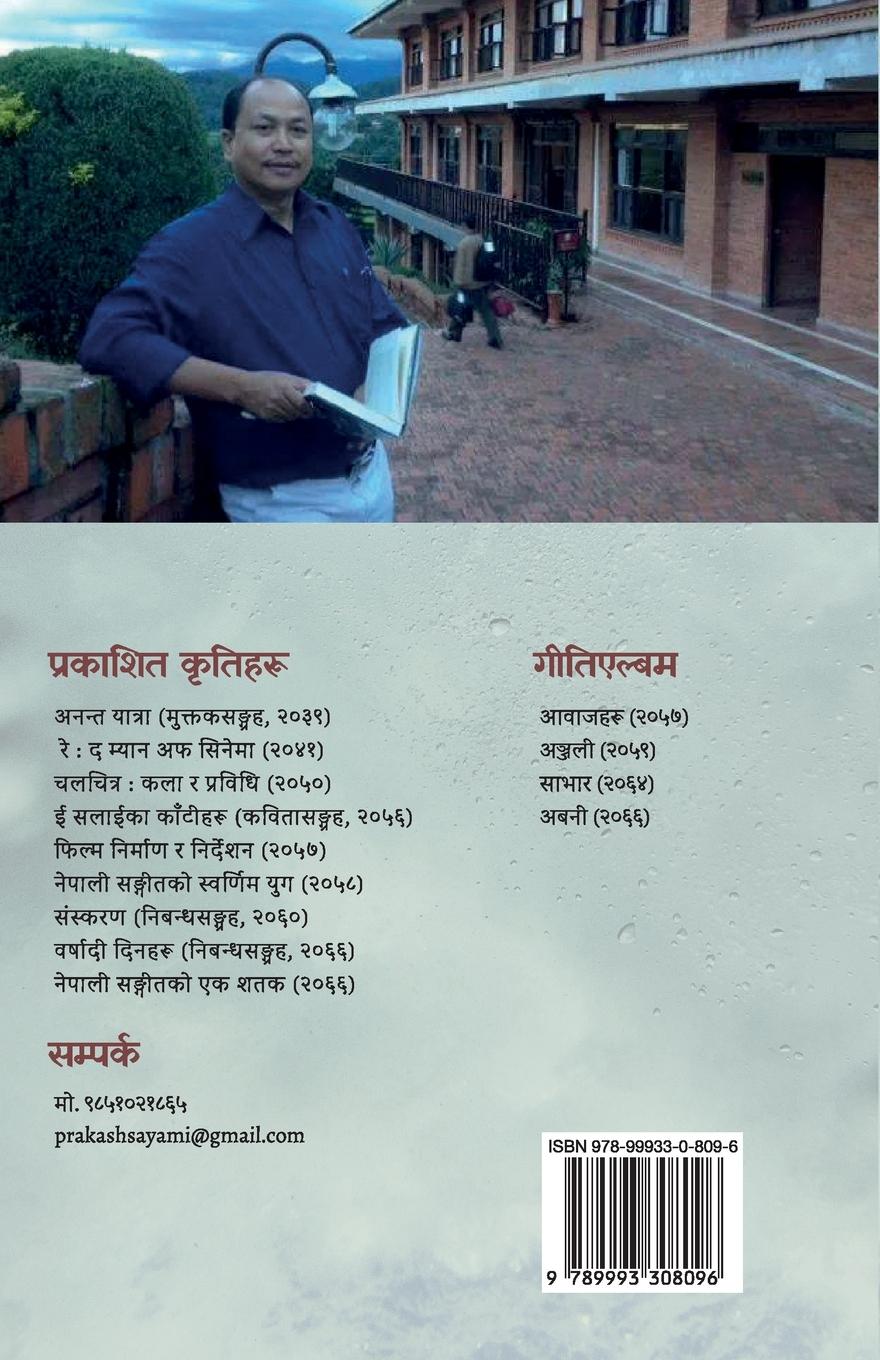 प्रकाशित कृतिहरू
अनन्त यात्रा (मुक्तकसङ्ग्रह, २०३९)
रे : द म्यान अफ सिनेमा (२०४१)
चलचित्र : कला र प्रविधि (२०५०)
ई सलाईका काँटीहरू (कवितासङ्ग्रह, २०५६)
फिल्म निर्माण र निर्देशन (२०५७)
नेपाली सङ्गीतको स्वर्णिम युग (२०५८)
संस्करण (निबन्धसङ्ग्रह, २०६०)
वर्षादी दिनहरू (निबन्धसङ्ग्रह, २०६६)
नेपाली सङ्गीतको एक शतक (२०६६)
गीतिएल्बम
आवाजहरू (२०५७)
अञ्जली (२०५९)
साभार (२०६४)
अबनी (२०६६)
सम्पर्क
मो. ९८५१०२१८६५
prakashsayami@gmail.com
ISBN 978-99933-0-809-6
9 789993 308096